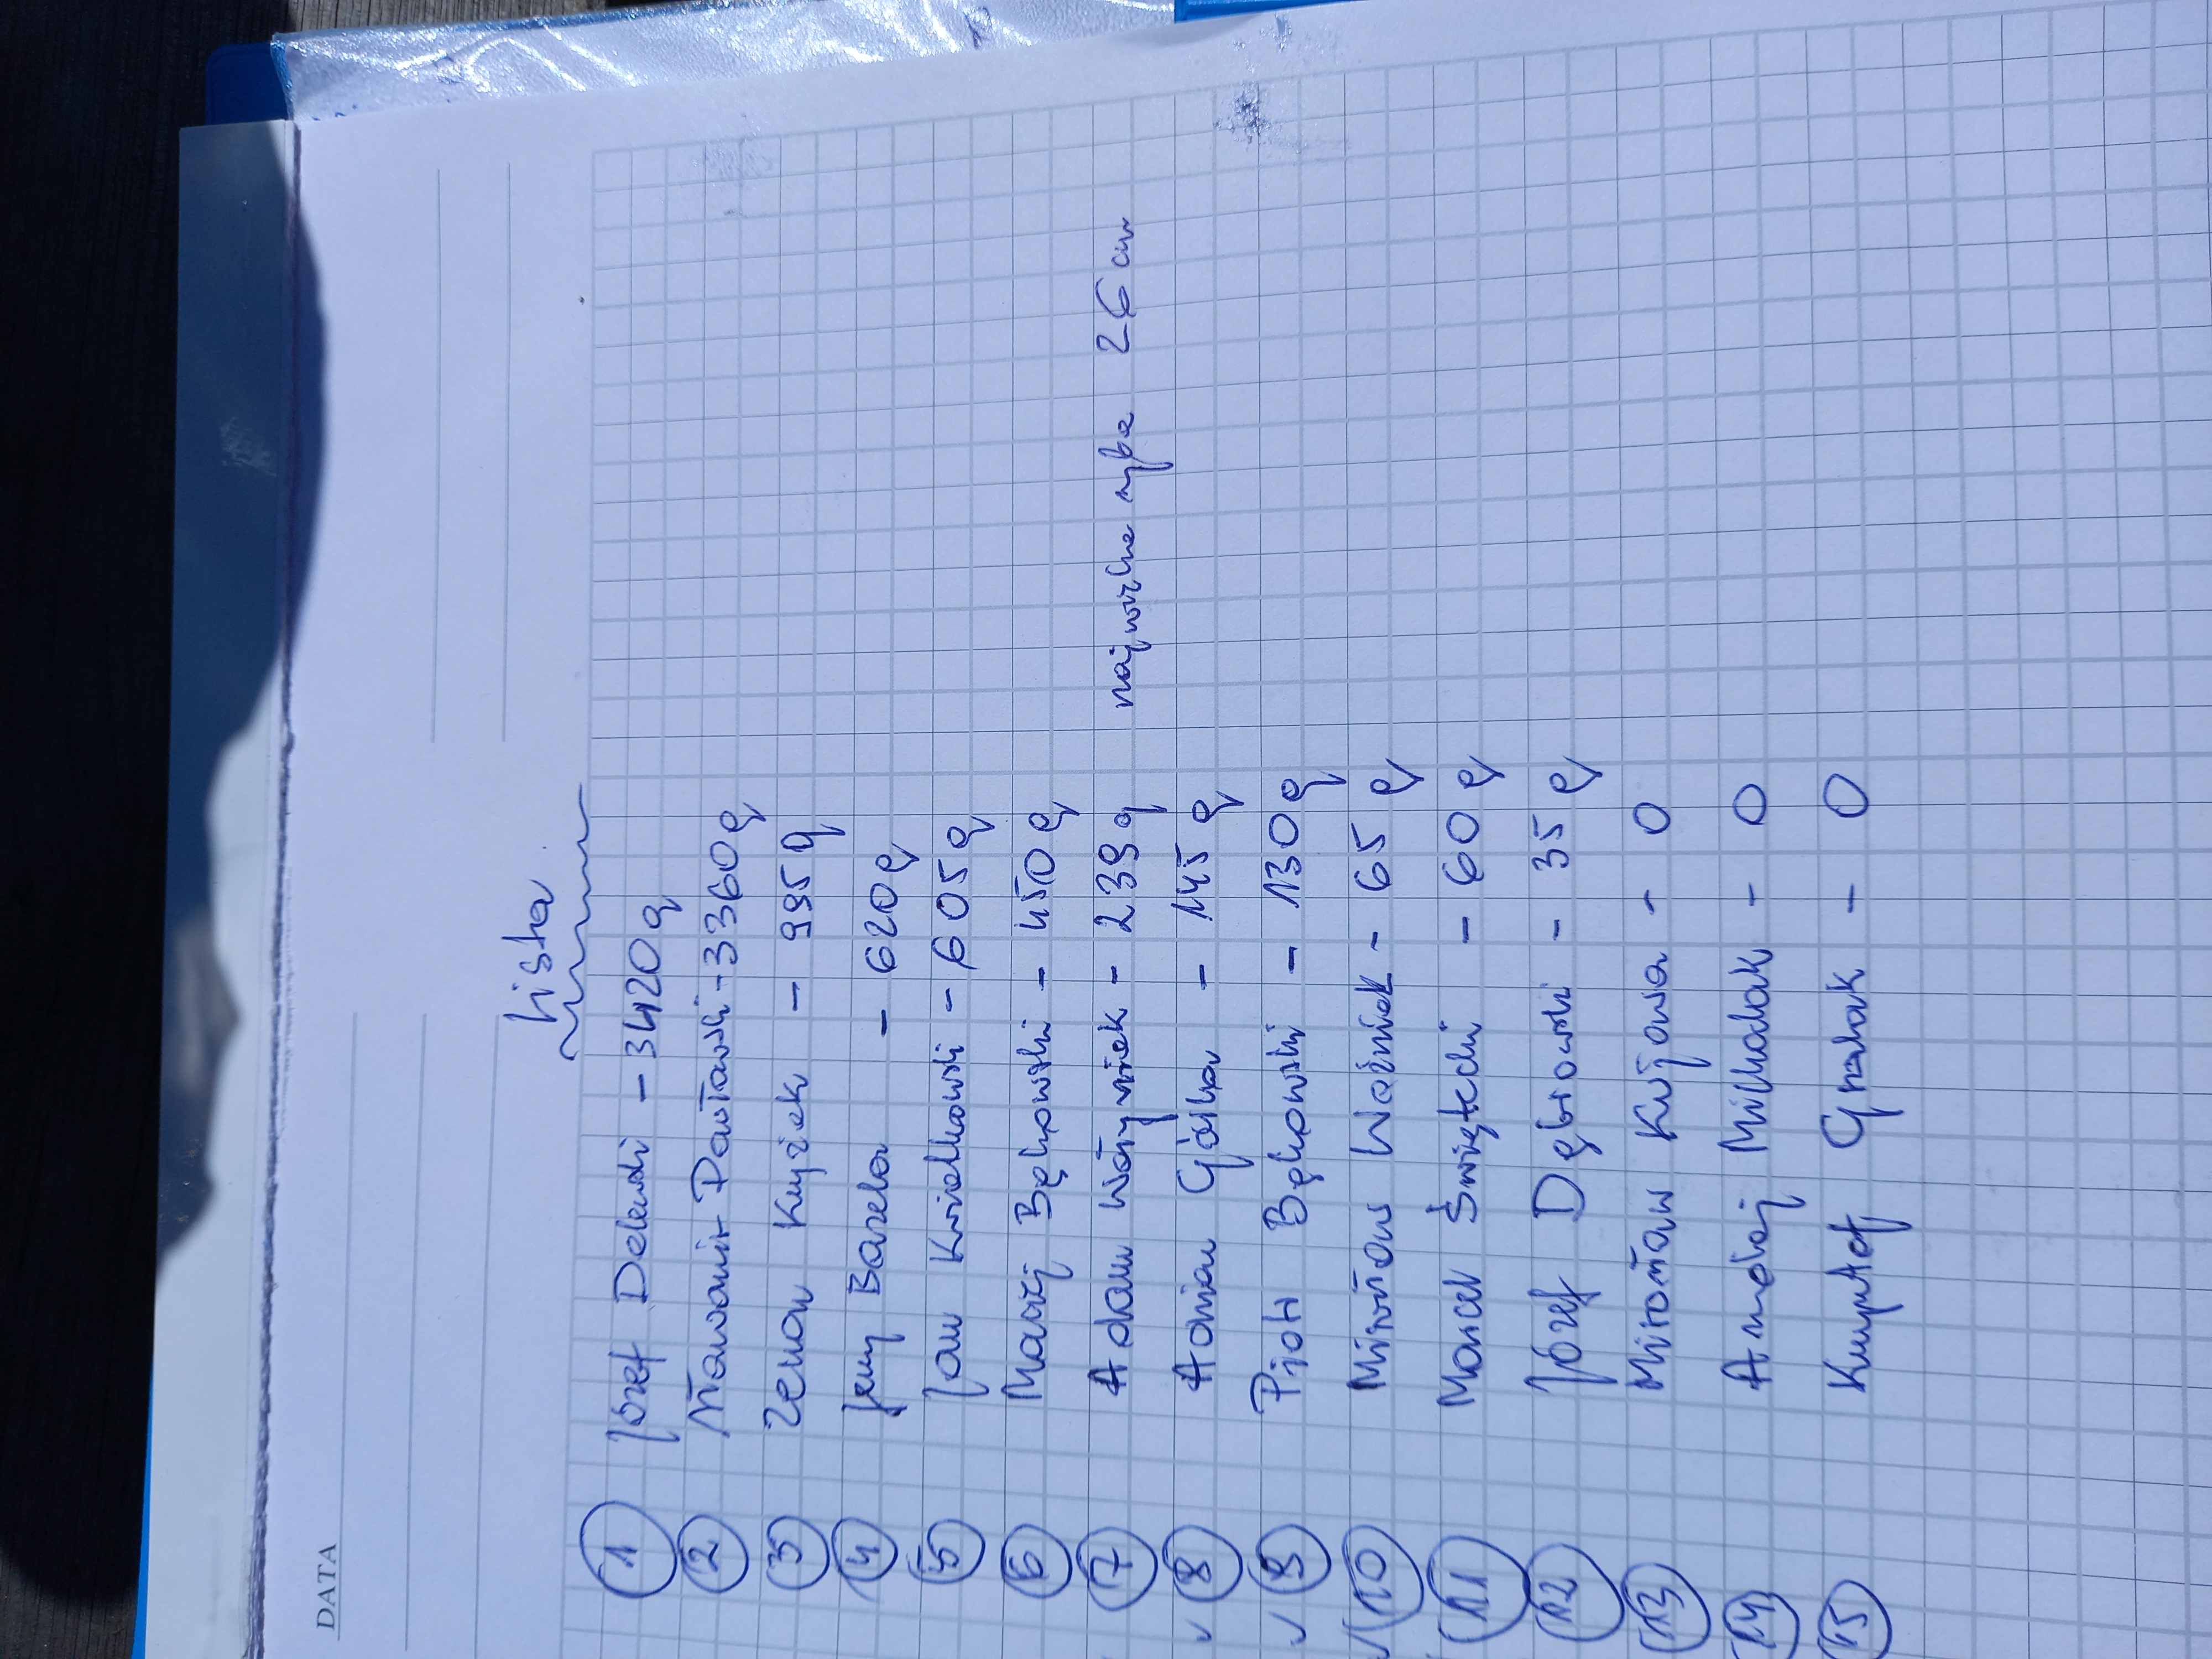 DATA
Lista
1 Józef Delewski - 3420 g
2 Sławomir Pawłowski - 3360 g
3 Zenon Kuyrek - 995 g
4 Jerzy Barela - 620 g
5 Jan Kwiatkowski - 605 g
6 Maciej Bękowski - 450 g
7 Adam - 239 g największa ryba 26 cm
8 Adrian Górka - 145 g
9 Piotr Bękowski - 130 g
10 Mirosław Woźniak - 65 g
11 Marcel Święcki - 60 g
12 Józef Dębowski - 35 g
13 Mirosław Kujawa - 0
14 Andrzej Michalak - 0
15 Krzysztof - 0